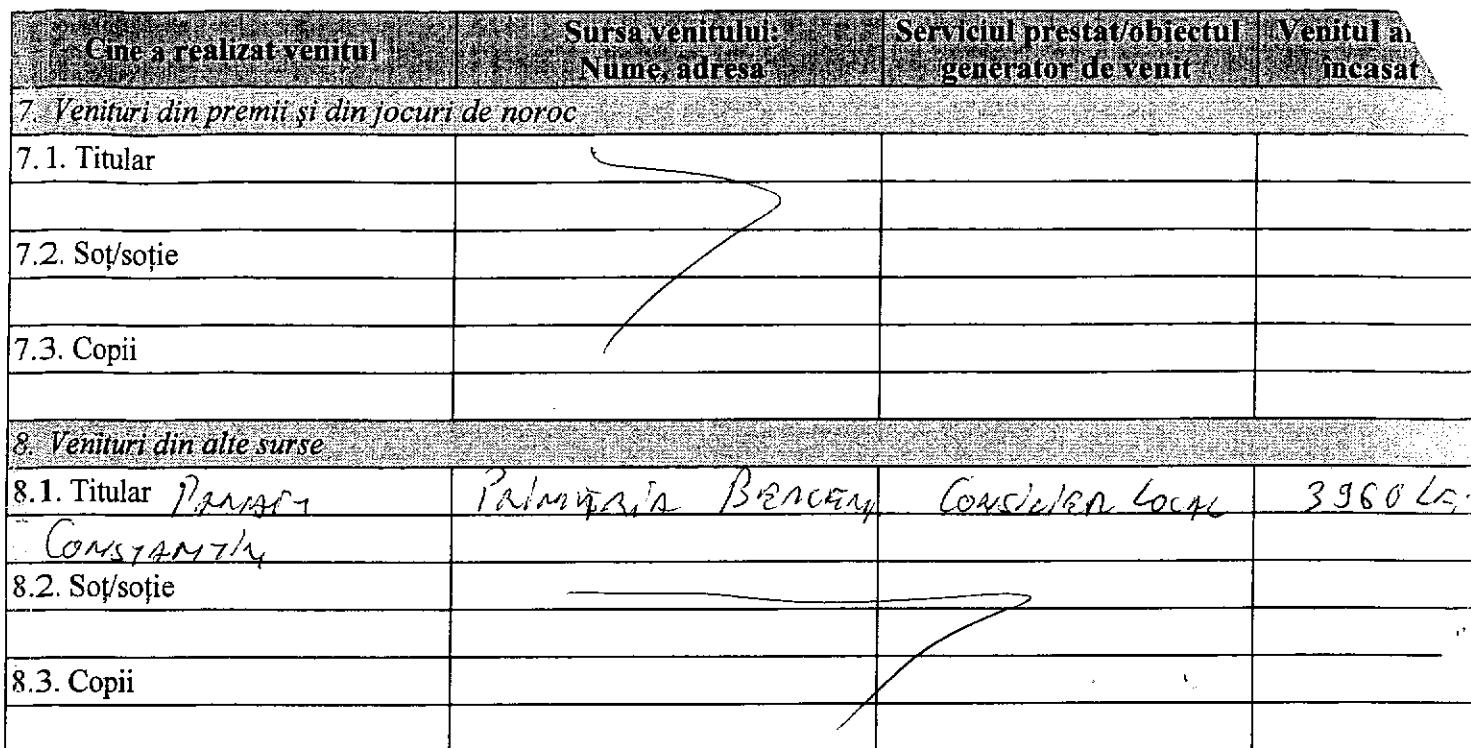 Cine a realizat venitul
Sursa venitului:
Nume, adresa
Serviciul prestat/obiectul
generator de venit
Venitul a
încasat
7. Venituri din premii și din jocuri de noroc
7.1. Titular
7.2. Soț/soție
7.3. Copii
8. Venituri din alte surse
8.1. Titular
PRIMĂRIA BERCENI CONSILIER LOCAL 3960 LE
CONSTANTIN
8.2. Soț/soție
8.3. Copii